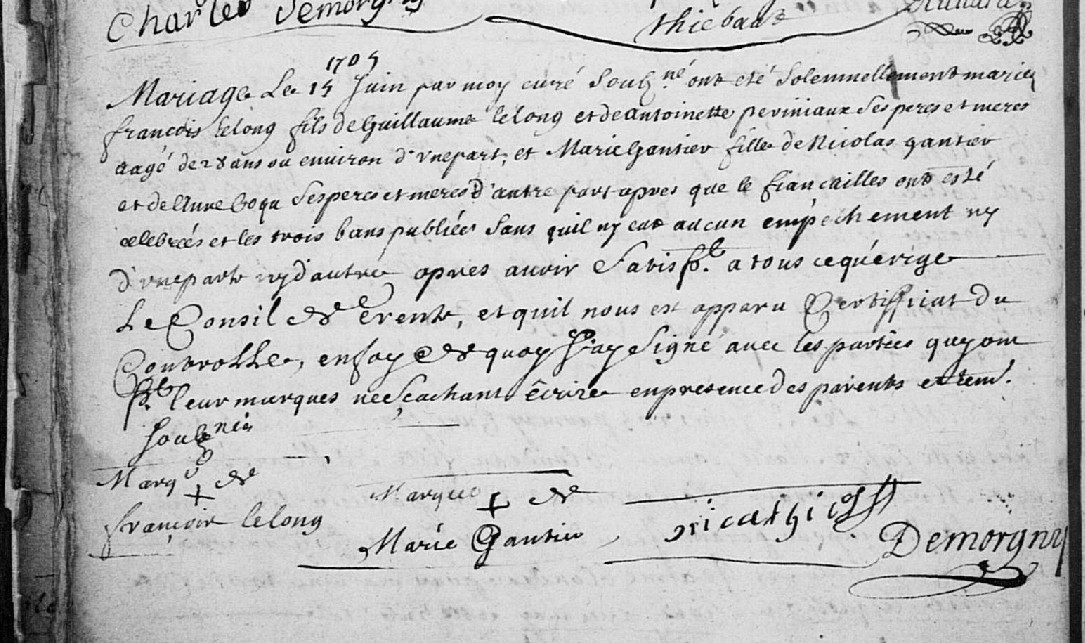 Charles Demorgny
thiebaut
1705
Mariage Le 15 Juin par moy curé Soubz.né ont eté Solemnellement mariez
francois lelong fils de Guillaume lelong et de antoinette periniaux Ses peres et meres
aagé de 28 ans ou environ d'vnepart, et Marie Gantier fille de Nicolas gantier
et de Anne Ses peres et meres d'autre part apres que le fiancailles ont esté
celebreés et les trois bans publiées Sans quil ny eut aucun empéchement ny
d'vneparte ny d'autre apres auoir Satisf.t a tous ce quérige
Le Consil de Trente, et quil nous est apparu Certifficat du
Controlle, en foy de quoy J'ay Signé avec les parties quy ont
f.t leur marques ne Scachant Écrire en presence des parents et tem.
Soubznés
Marq de
françois lelong
Marque de
Marie Gantier
Demorgny